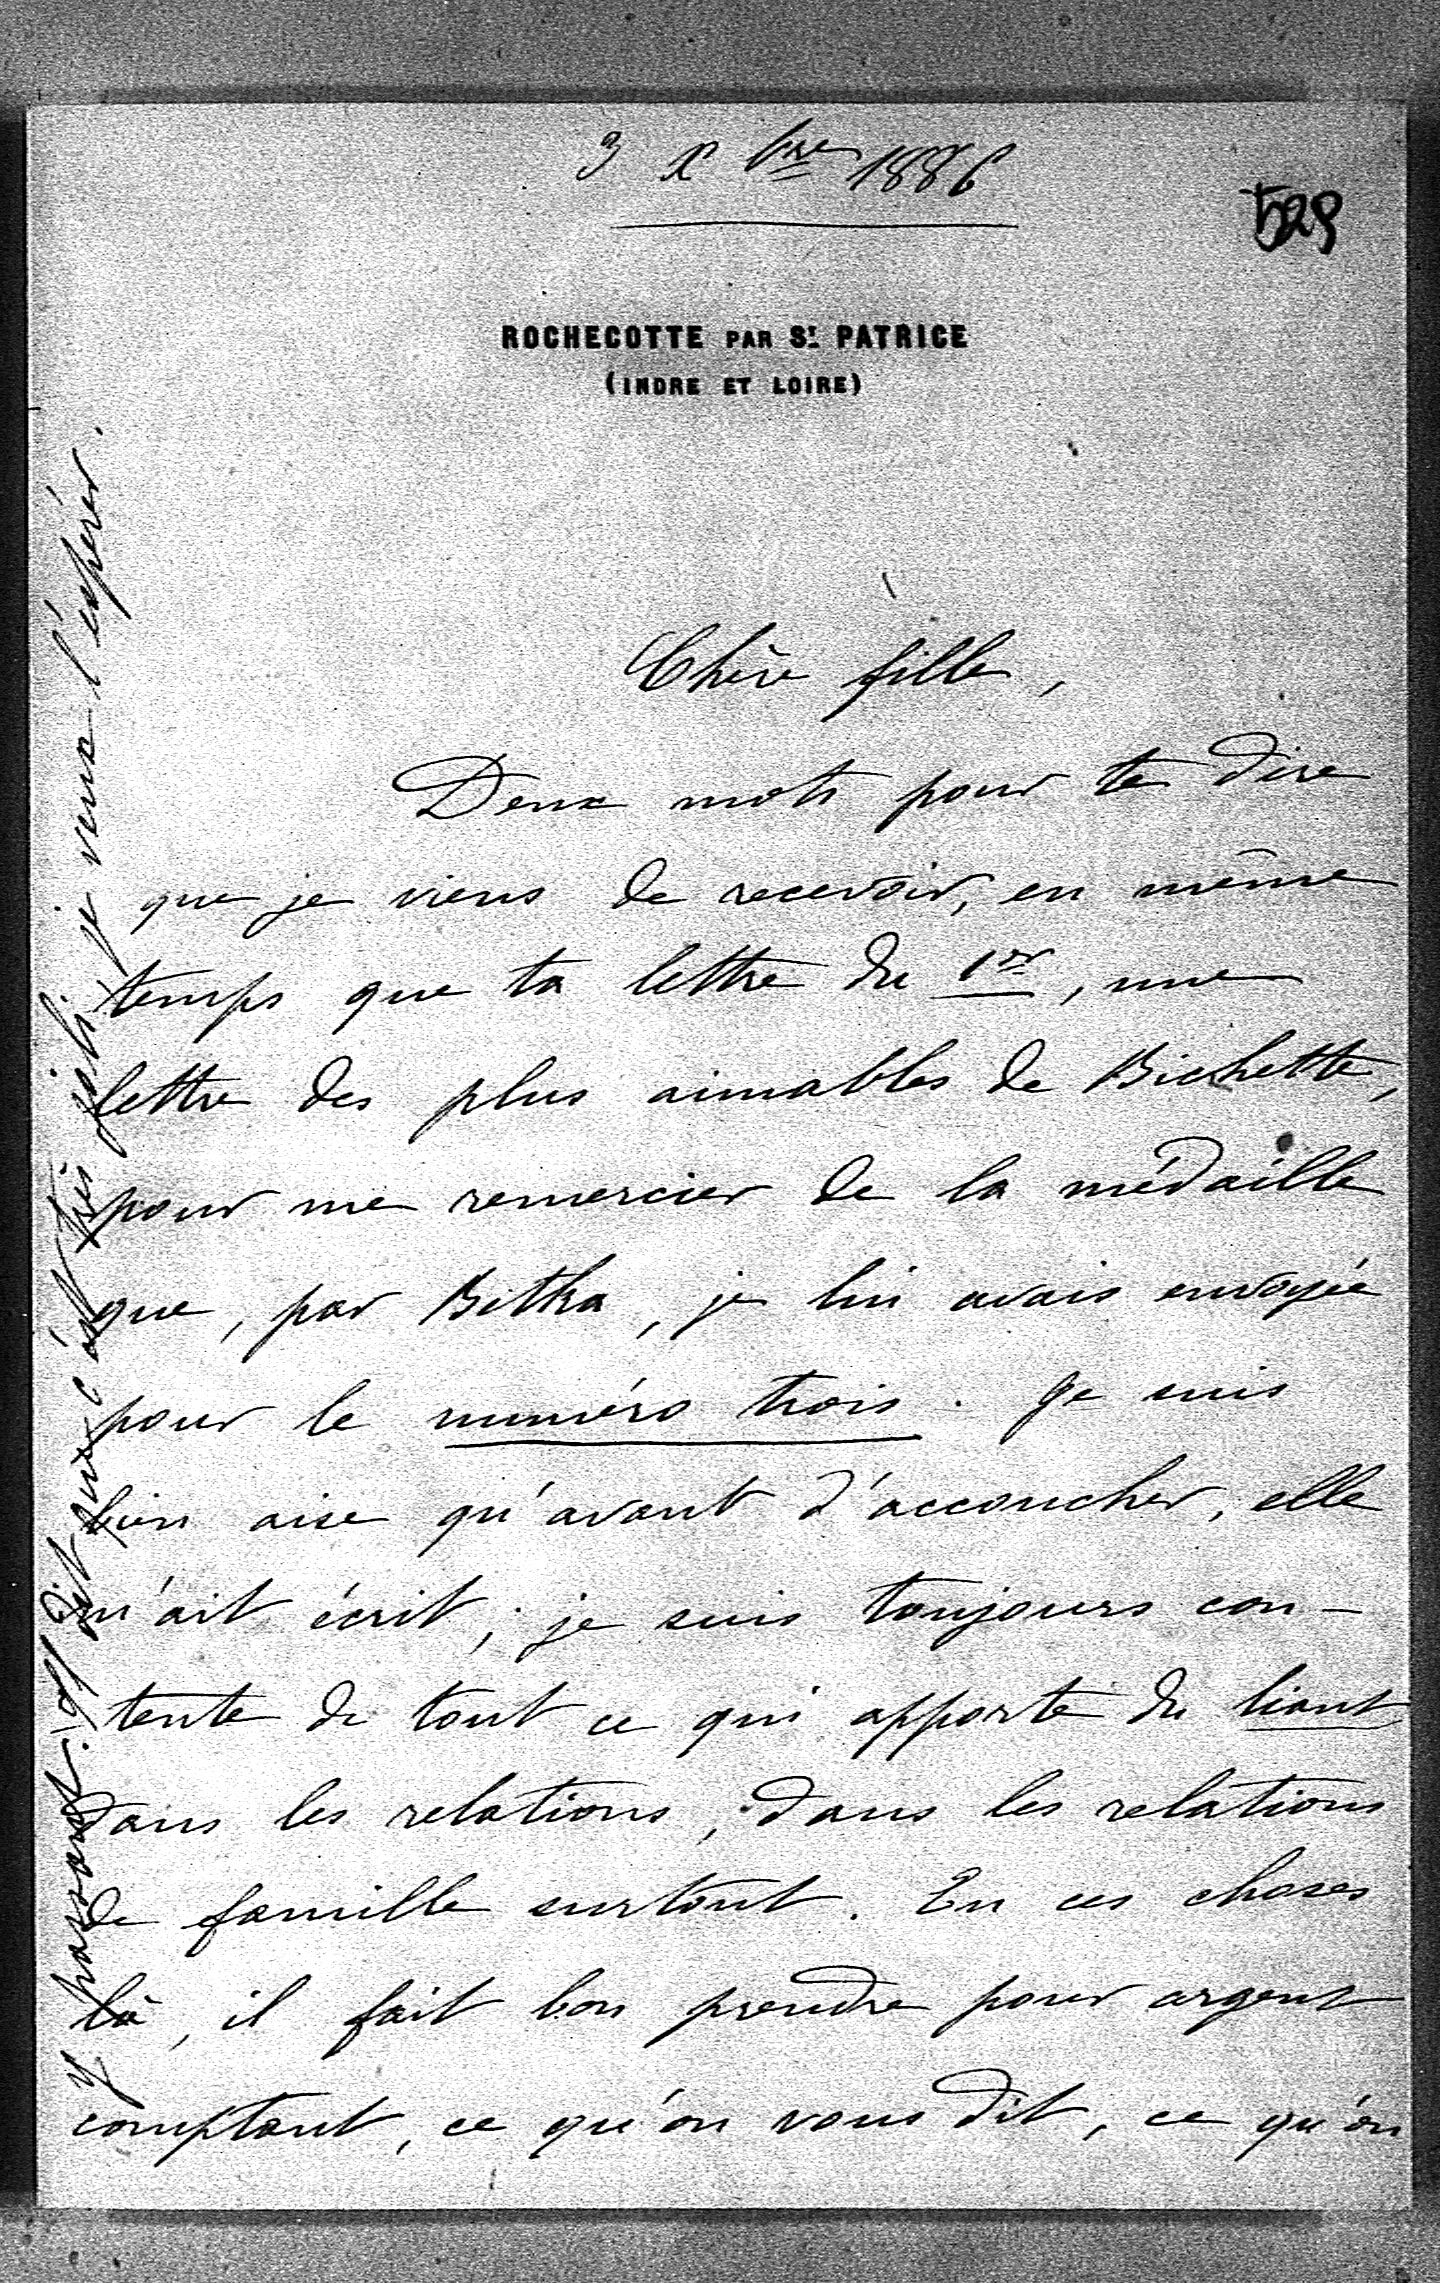 3 Xbre 1886
529
ROCHECOTTE PAR ST PATRICE
(INDRE ET LOIRE)
Chère fille,
Deux mots pour te dire
que je viens de recevoir, en même
temps que ta lettre du 1er, une
lettre des plus aimables de Bichette,
pour me remercier de la médaille
que, par Betka, je lui avais envoyée
pour le numéro trois. Je suis
bien aise qu'avant d'accoucher, elle
m'ait écrit; je suis toujours con-
tente de tout ce qui apporte du liant
dans les relations, dans les relations
de famille surtout. En ces choses
là, il fait bon prendre pour argent
comptant, ce qu'on vous dit, ce qu'on
y parvenant. Il dit que c'est très joli, je veux l'espérer.